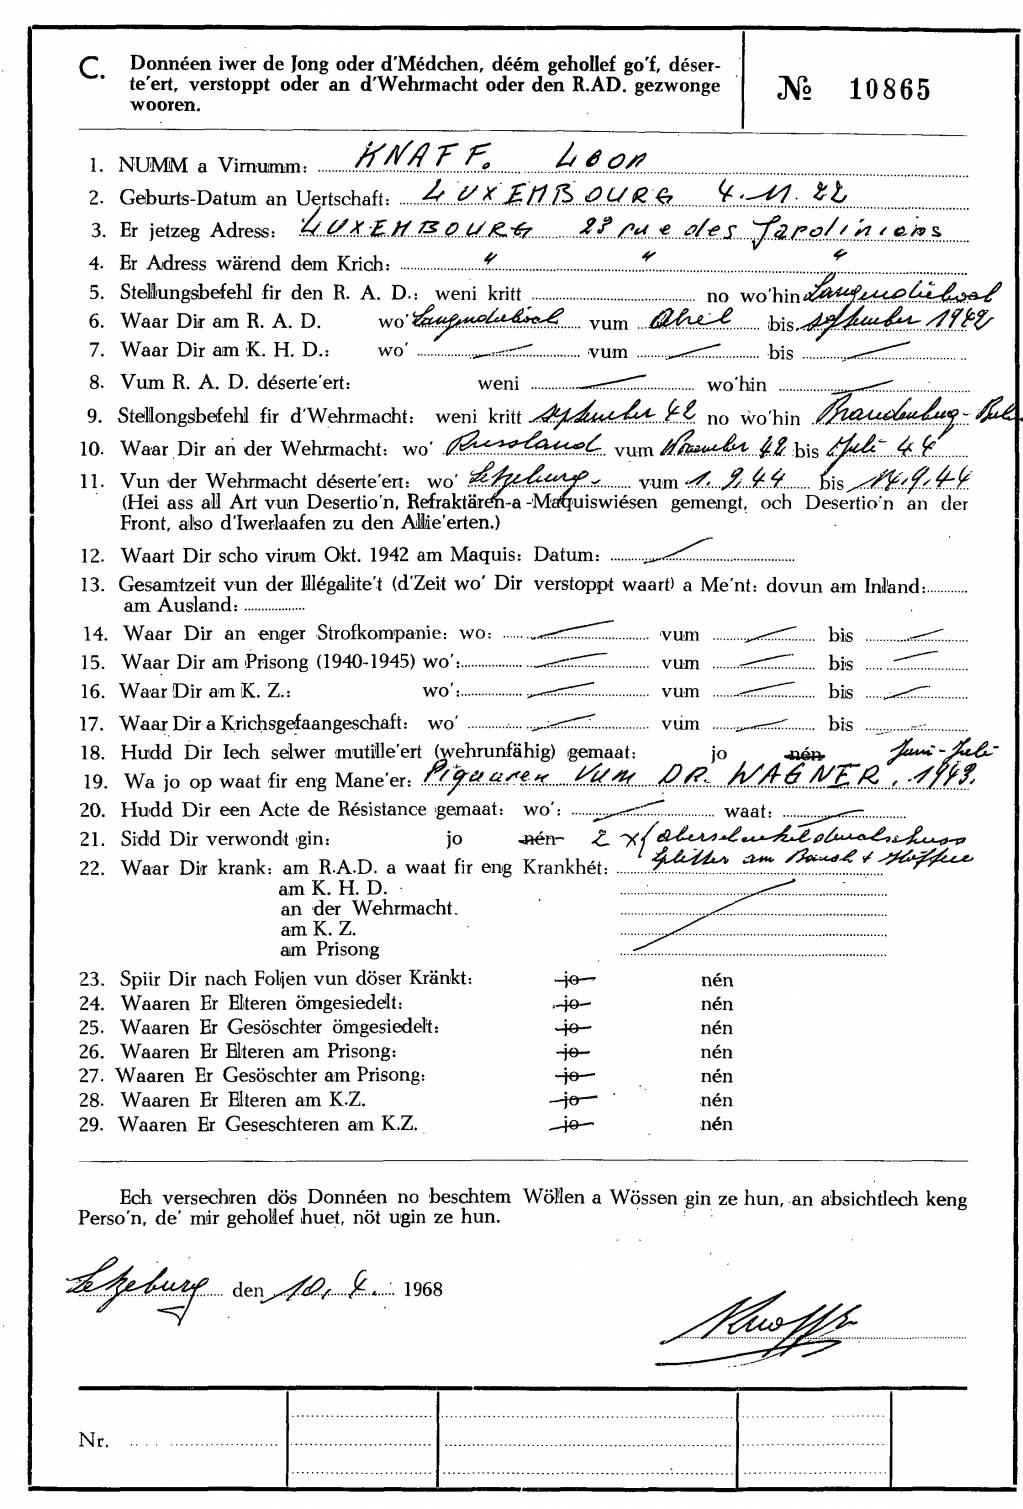 C. Donnéen iwer de Jong oder d'Médchen, déém gehollef go'f, déser-
te'ert, verstoppt oder an d'Wehrmacht oder den R.AD. gezwonge
wooren.
№ 10865
1. NUMM a Virnumm: KNAFF. Leon
2. Geburts-Datum an Uertschaft: LUXEMBOURG 4.11.22
3. Er jetzeg Adress: LUXEMBOURG 23 rue des
4. Er Adress wärend dem Krich: " " "
5. Stellungsbefehl fir den R. A. D.: weni kritt no wo'hin
6. Waar Dir am R. A. D. wo' vum bis September 1942
7. Waar Dir am K. H. D.: wo' — vum — bis —
8. Vum R. A. D. déserte'ert: weni — wo'hin —
9. Stellongsbefehl fir d'Wehrmacht: weni kritt september 42 no wo'hin Brandenburg-
10. Waar Dir an der Wehrmacht: wo' Russland vum November 42 bis Juli 44
11. Vun der Wehrmacht déserte'ert: wo' Letzeburg vum 1.9.44 bis 14.9.44
(Hei ass all Art vun Desertio'n, Refraktären-a -Maquiswiésen gemengt, och Desertio'n an der
Front, also d'Iwerlaafen zu den Allie'erten.)
12. Waart Dir scho virum Okt. 1942 am Maquis: Datum: —
13. Gesamtzeit vun der Illégalite't (d'Zeit wo' Dir verstoppt waart) a Me'nt: dovun am Inland:
am Ausland:
14. Waar Dir an enger Strofkompanie: wo: — vum — bis —
15. Waar Dir am Prisong (1940-1945) wo': — vum — bis —
16. Waar Dir am K. Z.: wo': — vum — bis —
17. Waar Dir a Krichsgefaangeschaft: wo' — vum — bis —
18. Hudd Dir Iech selwer mutille'ert (wehrunfähig) gemaat: jo nén Juni-Juli
19. Wa jo op waat fir eng Mane'er: Piqueuren VUM DR. WAGNER. 1943.
20. Hudd Dir een Acte de Résistance gemaat: wo': — waat: —
21. Sidd Dir verwondt gin: jo nén 2 x Oberschenkeldurchschuss
22. Waar Dir krank: am R.A.D. a waat fir eng Krankhét: Splitter am
am K. H. D.
an der Wehrmacht.
am K. Z.
am Prisong
23. Spiir Dir nach Foljen vun döser Kränkt: jo nén
24. Waaren Er Elteren ömgesiedelt: jo nén
25. Waaren Er Gesöschter ömgesiedelt: jo nén
26. Waaren Er Elteren am Prisong: jo nén
27. Waaren Er Gesöschter am Prisong: jo nén
28. Waaren Er Elteren am K.Z. jo nén
29. Waaren Er Geseschteren am K.Z. jo nén
Ech versechren dös Donnéen no beschtem Wöllen a Wössen gin ze hun, an absichtlech keng
Perso'n, de' mir gehollef huet, nöt ugin ze hun.
Letzeburg den 10. 4. 1968
Knaff
Nr.